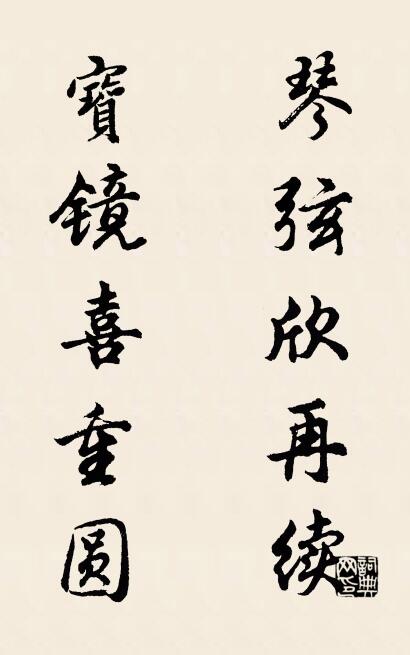 琴弦欣再续
寶镜喜重圆
詞典网